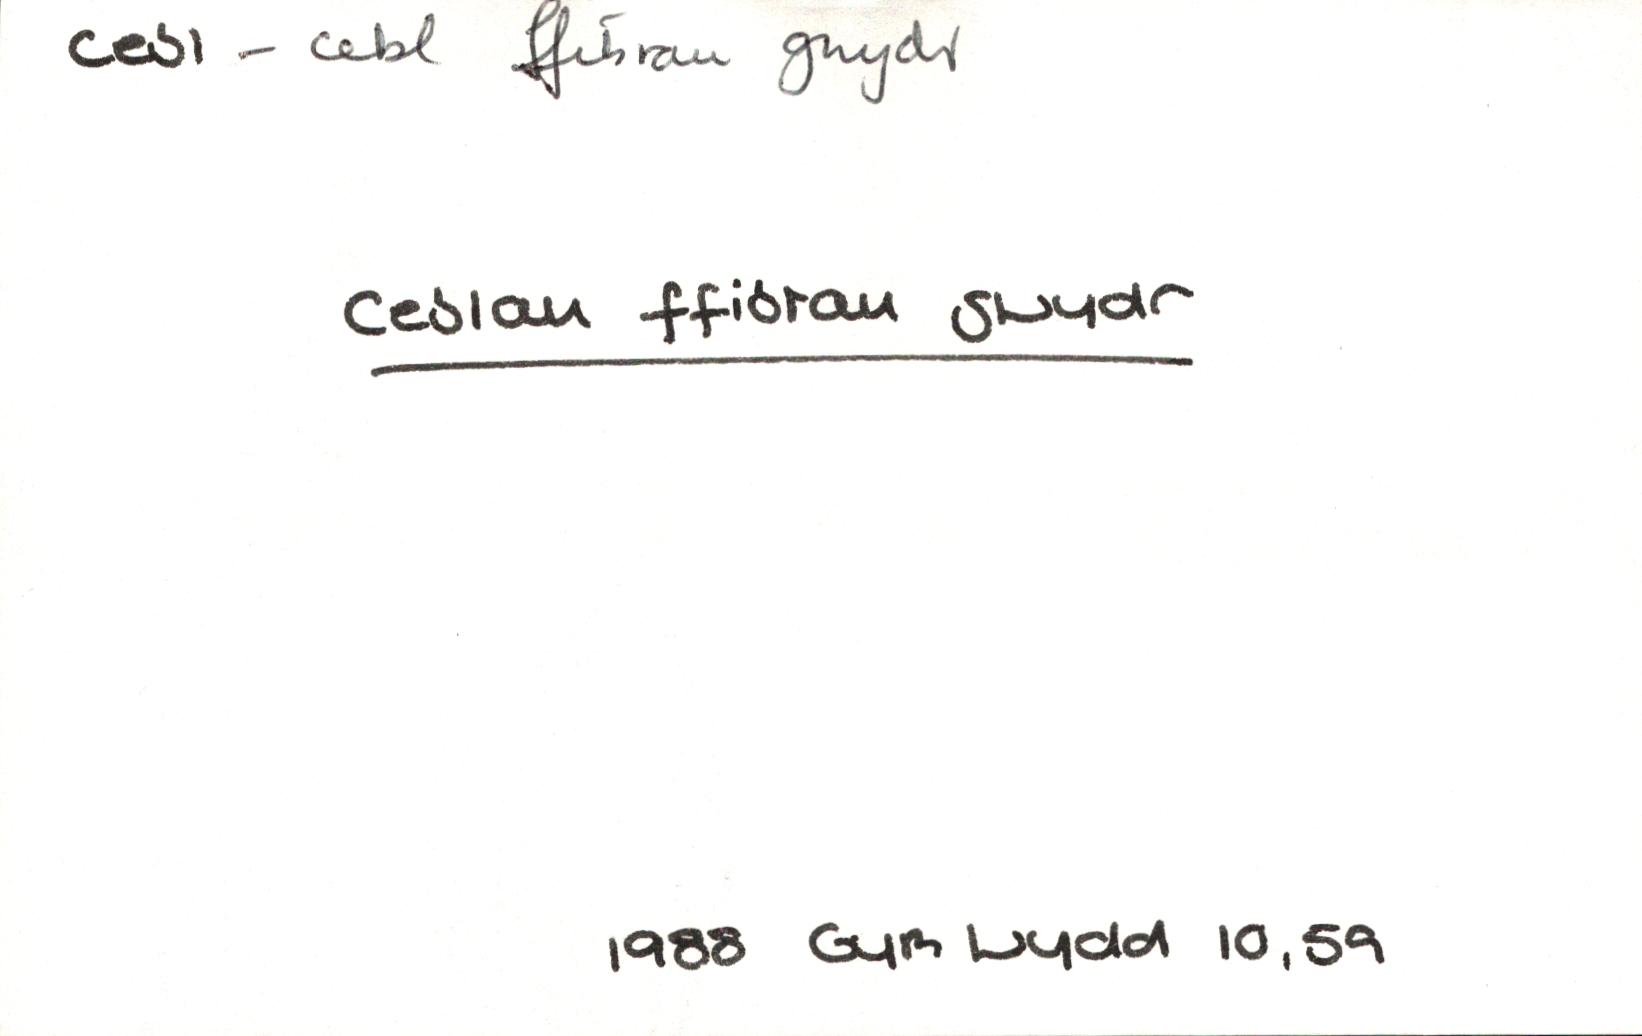 cebl – cebl ffibrau gwydr
Ceblau ffibrau gwydr
1988 Gym Wydd 10, 59